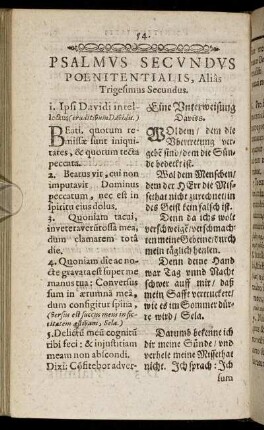 54.
PSALMVS SECVNDVS
POENITENTIALIS, Aliàs
Trigesimus Secundus.
1. Ipsi Davidi intel-
lectus (eruditissimi Davidis.)
BEati, quorum re-
missæ sunt iniqui-
tates, & quorum tecta
peccata.
2. Beatus vir, cui non
imputavit Dominus
peccatum, nec est in
spiritu eius dolus.
3. Quoniam tacui,
inveteraverūt ossa mea,
dum clamarem totâ
die.
4. Quoniam die ac no-
cte gravata est super me
manus tua: Conversus
sum in ærumnâ meâ,
dum configitur spina,
(versus est succus meus in sic-
citatem æstivam, Sela.)
5. Delictū meū cognitū
tibi feci: & injustitiam
meam non abscondi.
Dixi: Cōfitebor adver-
Eine Unterweisung
Davids.
WOldem / dem die
Vbertretung ver-
gebē sind / dem die Sün-
de bedeckt ist.
Wol dem Menschen /
dem der HErr die Mis-
sethat nicht zurechnet / in
des Geist kein falsch ist.
Denn da ichs wolt
verschweigē / verschmach-
ten meine Gebeine / durch
mein täglich heulen.
Denn deine Hand
war Tag vnnd Nacht
schwer auff mir / daß
mein Safft vertruckete /
wie es im Sommer dür-
re wird / Sela.
Darumb bekenne ich
dir meine Sünde / vnd
verhele meine Missethat
nicht. Ich sprach: Ich
sum